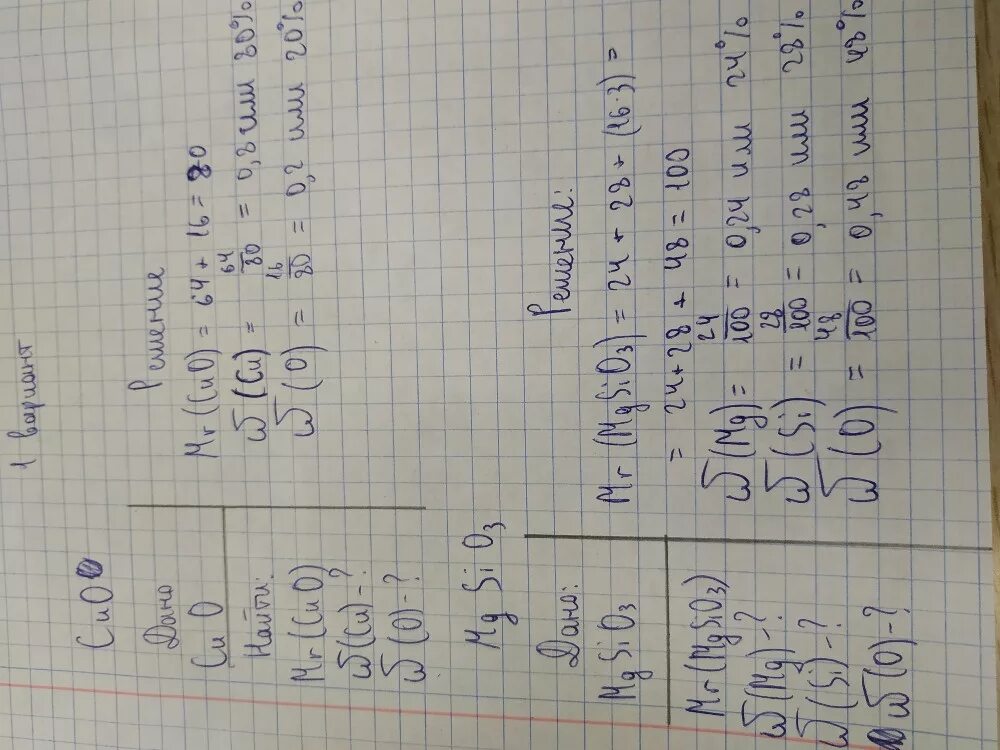 1 вариант
CuO
Дано
CuO
Найти:
Mr (CuO)
ω (Cu) - ?
ω (O) - ?
Решение
Mr (CuO) = 64 + 16 = 80
ω (Cu) = 64/80 = 0,8 или 80%
ω (O) = 16/80 = 0,2 или 20%
MgSiO₃
Дано:
MgSiO₃
Mr (MgSiO₃)
ω (Mg) - ?
ω (Si) - ?
ω (O) - ?
Решение:
Mr (MgSiO₃) = 24 + 28 + (16·3) =
= 24 + 28 + 48 = 100
ω (Mg) = 24/100 = 0,24 или 24%
ω (Si) = 28/100 = 0,28 или 28%
ω (O) = 48/100 = 0,48 или 48%